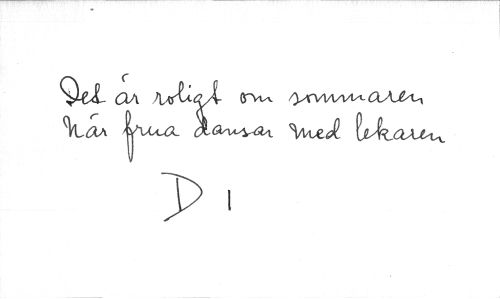 Det är roligt om sommaren
När frua dansar med lekaren
D 1